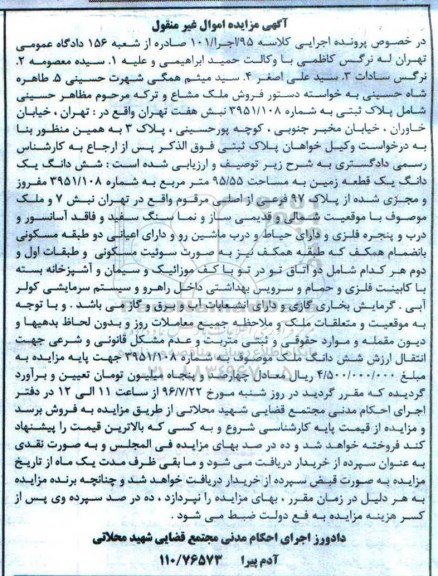 آگهی مزایده اموال غیر منقول
در خصوص پرونده اجرایی کلاسه ۹۵/اجرا/۱۰۱ صادره از شعبه ۱۵۶ دادگاه عمومی
تهران له نرگس کاظمی با وکالت حمید ابراهیمی و علیه ۱. سیده معصومه ۲.
نرگس سادات ۳. سید علی اصغر ۴. سید میثم همگی شهرت حسینی ۵. طاهره
شاه حسینی به خواسته دستور فروش ملک مشاع و ترکه مرحوم مظاهر حسینی
شامل پلاک ثبتی به شماره ۳۹۵۱/۱۰۸ نبش هفت تهران واقع در : تهران ، خیابان
خاوران ، خیابان مخبر جنوبی ، کوچه پورحسینی ، پلاک ۳ به همین منظور بنا
به درخواست وکیل خواهان پلاک ثبتی فوق الذکر پس از ارجاع به کارشناس
رسمی دادگستری به شرح زیر توصیف و ارزیابی شده است : شش دانگ یک
دانگ یک قطعه زمین به مساحت ۹۵/۵۵ متر مربع به شماره ۳۹۵۱/۱۰۸ مفروز
و مجزی شده از پلاک ۹۷ فرعی از اصلی مرقوم واقع در تهران نبش ۷ و ملک
موصوف با موقعیت شمالی و قدیمی ساز و نما سنگ سفید و فاقد آسانسور و
درب و پنجره فلزی و دارای حیاط و درب ماشین رو و دارای اعیانی دو طبقه مسکونی
بانضمام همکف که طبقه همکف نیز به صورت سوئیت مسکونی و طبقات اول و
دوم هر کدام شامل دو اتاق تو در تو با کف موزائیک و سیمان و آشپزخانه بسته
با کابینت فلزی و حمام و سرویس بهداشتی داخل راهرو و سیستم سرمایشی کولر
آبی . گرمایش بخاری گازی و دارای انشعابات آب و برق و گاز می باشد . و با توجه
به موقعیت و متعلقات ملک و ملاحظه جمیع معاملات روز و بدون لحاظ بدهیها و
دیون مقمله و موارد حقوقی و ثبتی مترتب و عدم مشکل قانونی و شرعی جهت
انتقال ارزش شش دانگ ملک موصوف به شماره ۳۹۵۱/۱۰۸ جهت پایه مزایده به
مبلغ ۴/۵۰۰/۰۰۰/۰۰۰ ریال معادل چهارصد و پنجاه میلیون تومان تعیین و برآورد
گردیده که مقرر گردید در روز شنبه مورخ ۹۶/۷/۲۲ از ساعت ۱۱ الی ۱۲ در دفتر
اجرای احکام مدنی مجتمع قضایی شهید محلاتی از طریق مزایده به فروش برسد
و مزایده از قیمت پایه کارشناسی شروع و به کسی که بالاترین قیمت را پیشنهاد
کند فروخته خواهد شد و ده در صد بهای مزایده فی المجلس و به صورت نقدی
به عنوان سپرده از خریدار دریافت می شود و ما بقی ظرف مدت یک ماه از تاریخ
مزایده به صورت قبض سپرده از خریدار دریافت خواهد شد و چنانچه برنده مزایده
به هر دلیل در زمان مقرر ، بهای مزایده را نپردازد ، ده در صد سپرده وی پس از
کسر هزینه مزایده به نفع دولت ضبط می شود .
دادورز اجرای احکام مدنی مجتمع قضایی شهید محلاتی
آدم پیرا ۱۱۰/۷۶۵۷۳